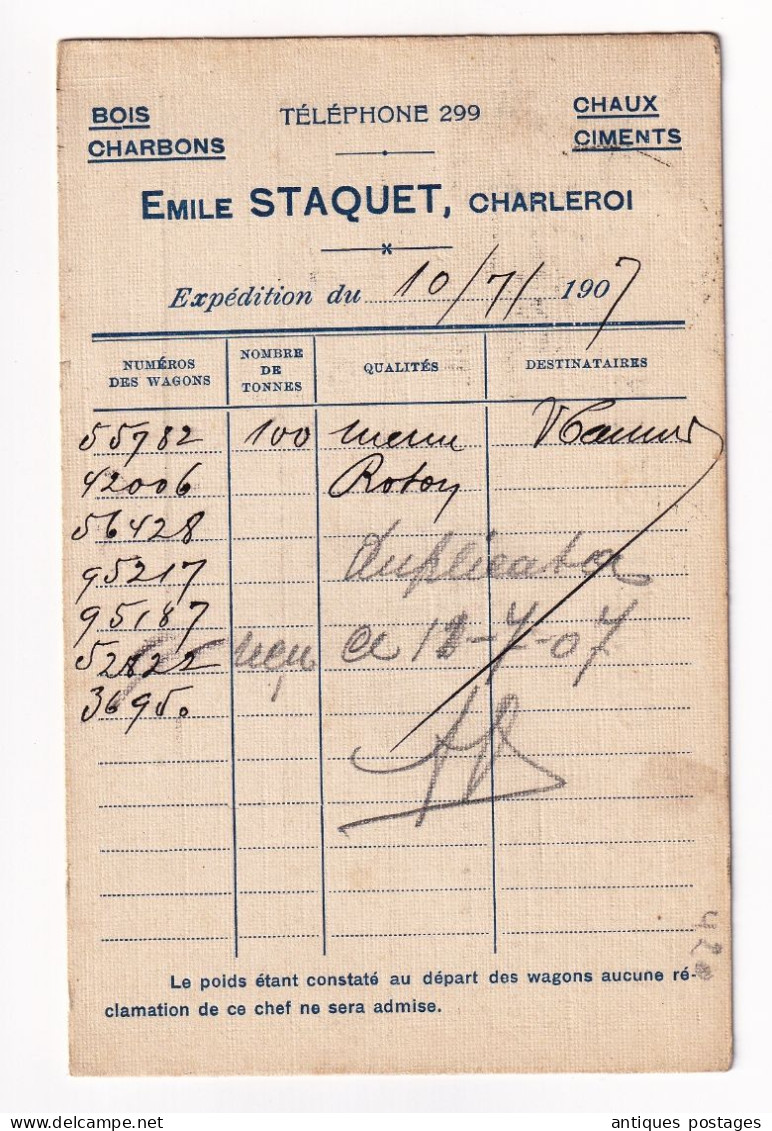 BOIS TÉLÉPHONE 299 CHAUX
CHARBONS CIMENTS
EMILE STAQUET, CHARLEROI
Expédition du 10/7/ 1907
NUMÉROS DES WAGONS NOMBRE DE TONNES QUALITÉS DESTINATAIRES
55782 100 menu
42006 Roton
56428
95217 duplicata
95187
52822 reçu ce 11-7-07
36950
420
Le poids étant constaté au départ des wagons aucune ré-
clamation de ce chef ne sera admise.
antiques postages